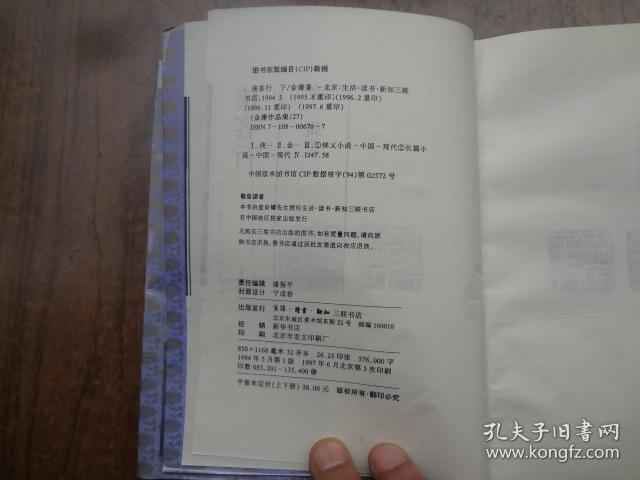 图书在版编目(CIP)数据
侠客行 下/金庸著.-北京:生活·读书·新知三联
书店,1994.5 (1995.8重印)(1996.2重印)
(1996.11重印) (1997.6重印)
(金庸作品集;27)
ISBN 7-108-00670-7
Ⅰ.侠… Ⅱ.金… Ⅲ.①侠义小说-中国-现代②长篇小
说-中国-现代 Ⅳ.I247.58
中国版本图书馆CIP数据核字(94)第02572号
敬告读者
本书由查良镛先生授权生活·读书·新知三联书店
在中国地区独家出版发行
凡购买三联书店出版的图书,如有质量问题,请向原
购书店洪换,售书店通过原批发渠道向我店退换。
责任编辑 潘振平
封面设计 宁成春
出版发行 生活·读书·新知三联书店
北京东城区美术馆东街22号 邮编 100010
经销 新华书店
印刷 北京市宏文印刷厂
850×1168毫米 32开本 26.25印张 576,000字
1994年5月第1版 1997年6月北京第5次印刷
印数 085,201-135,400册
平装本定价(上下册)38.00元 版权所有·翻印必究
孔夫子旧书网
www.kongfz.com